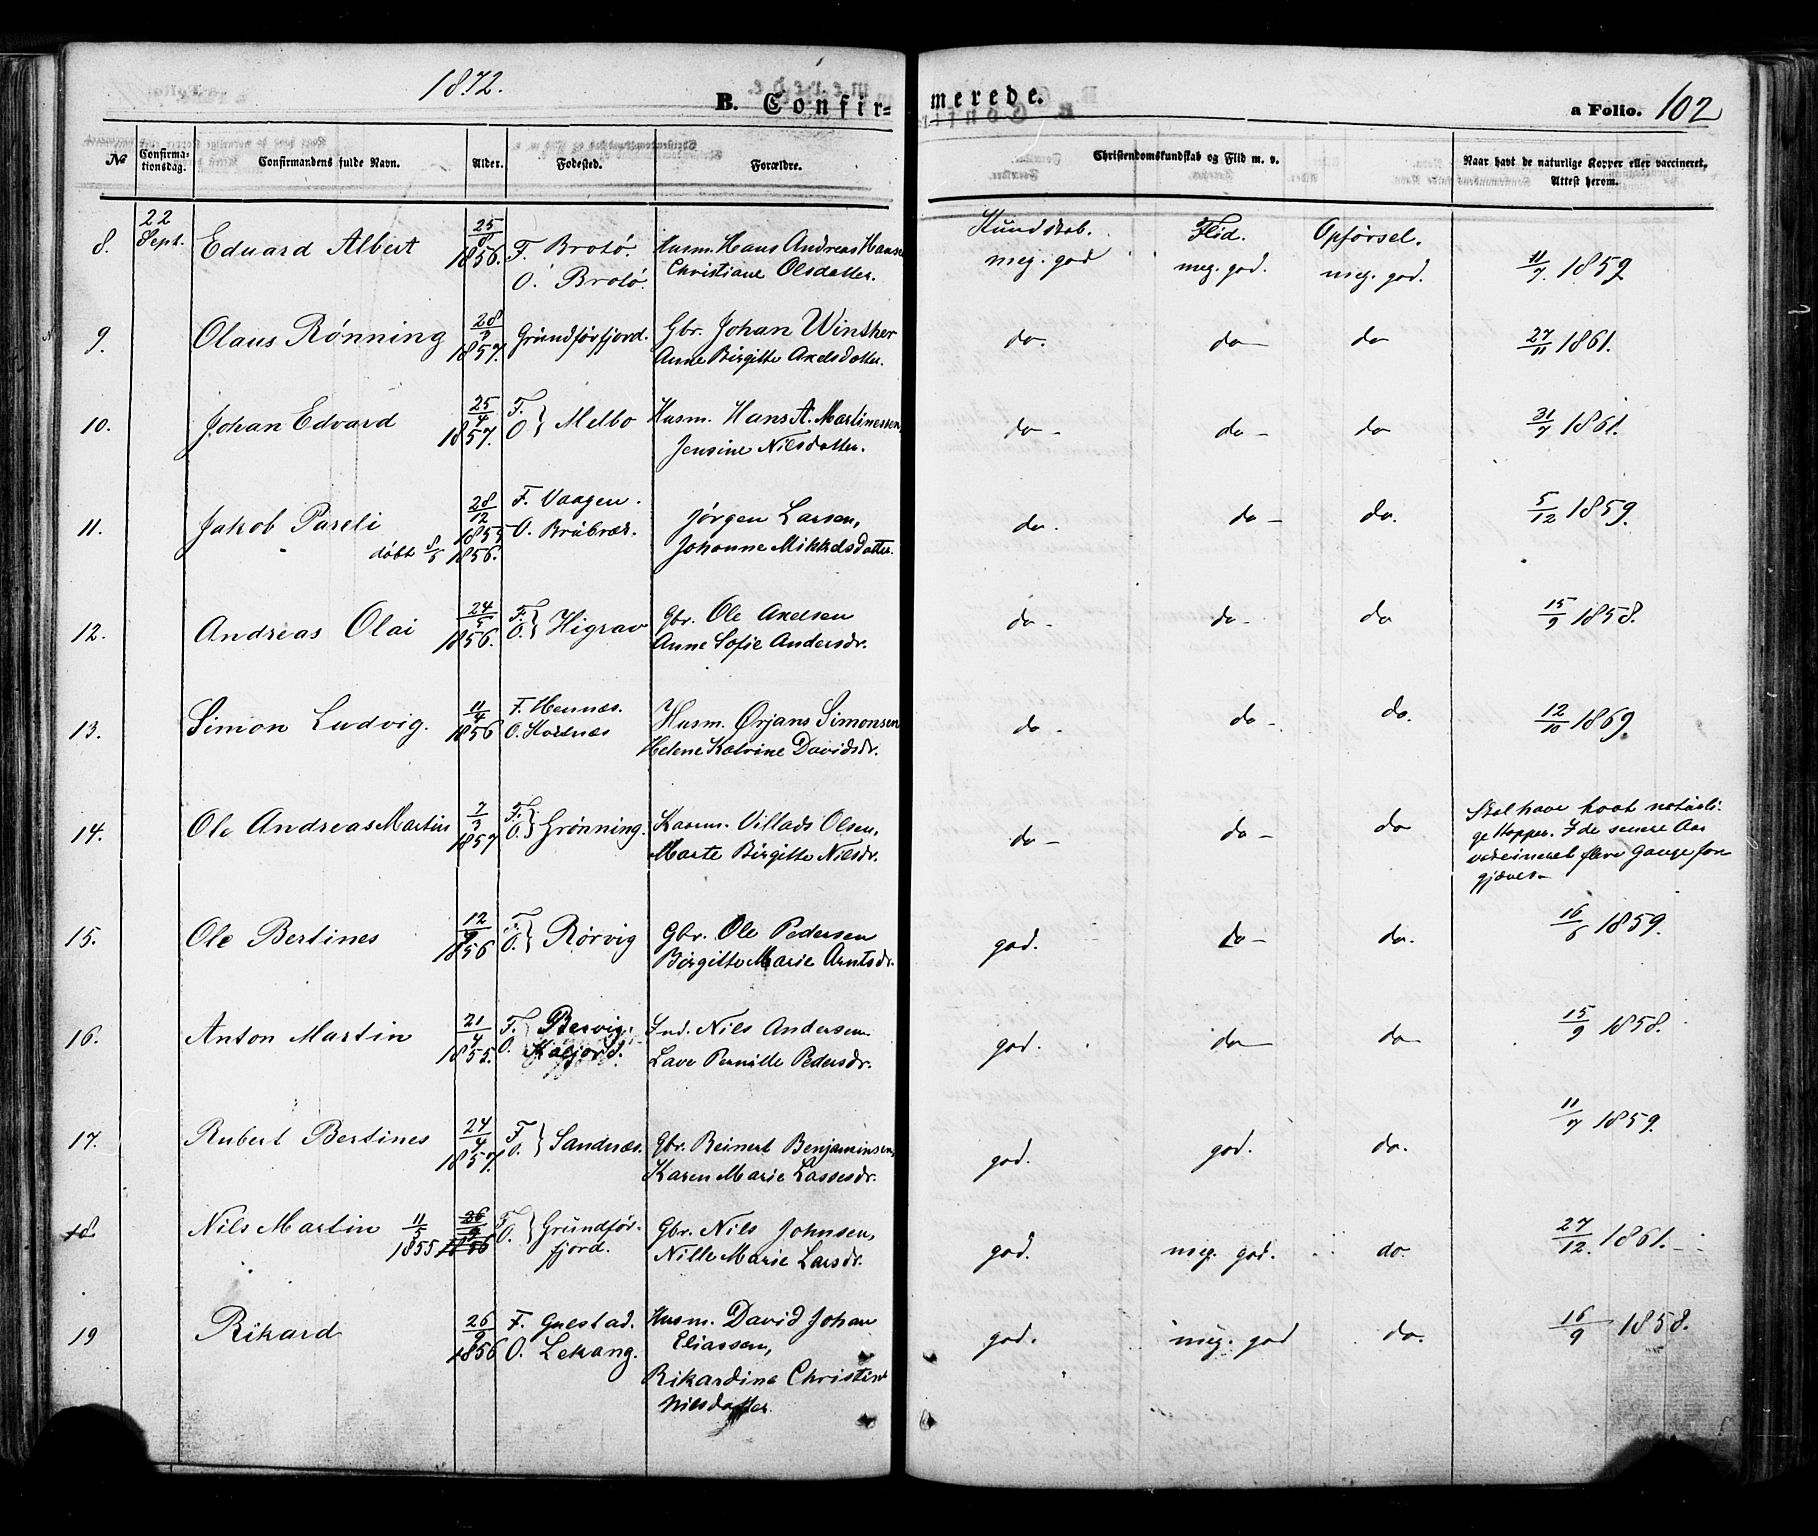 1872.
B. Confirmerede.
a Folio. 102
No Confirmationsdag. Confirmandens fulde Navn. Alder. Fodested. Forældre. Christendomskundskab og Flid m. v. Naar havt de naturlige Kopper eller vaccineret, Attest herom.
Kundskab. Flid. Opførsel.
8. 22 Sept. Eduard Albert 25/8 1856. F. Brotö. O. Brotö. Husm. Hans Andreas Hansen Christiane Olsdatter. meg. god meg. god. meg. god. 11/7. 1859
9. Olaus Rønning 28/3 1857. Grundførfjord. Gbr. Johan Winther Anne Birgitte Axelsdatter. do. do do 27/11 1861.
10. Johan Edvard 25/4 1857. F. O } Melbo Husm. Hans A. Martinessen, Jensine Nilsdatter. do - do - do 31/7 1861.
11. Jakob Pareli døbt 8/5 1856. 28/12 1855 F. Vaagen. O. Brübræk. Jørgen Larsen, Johanne Mikkelsdatter. do. do - do. 5/12 1859.
12. Andreas Olai 24/5 1856. F. O. } Higrav Gbr. Ole Axelsen Anne Sofie Andersdr. do - do - do 15/9 1858.
13. Simon Ludvig. 11/4 1856 F. Hennæs. O. Husm. Ørjans Simonsen Helene Katrine Davidsdr. do - do - do. 12/10 1869.
14. Ole Andreas Martin 2/3 1857 F. O. } Grønning. Kaarm. Villads Olsen, Marte Birgitte Nilsdr. do - do - do Skal have havt naturlige Kopper. I de senere Aar vaccineret flere Gange forgjæves -
15. Ole Bertines 12/9 1856 F. O. } Rørvig Gbr. Ole Pedersen Birgitte Marie Arntsdr. god. do - do. 16/6 1859.
16. Anton Martin 21/4 1855. F. O. Ind. Nils Andersen Lave Pernille Pedersdr. god. do do 15/9 1858.
17. Rubert Bertines 24/4 1857. F. O. } Sandnæs. Gbr. Reinert Benjaminsen, Karen Marie Lassesdr. god. god. do. 11/7 1859.
18 Nils Martin 11/5 1855 26/9 1856 F. O. } Grundførfjord. Gbr. Nils Johnsen, Nille Marie Larsdr. god. meg. god. do. 27/12. 1861.
19 Rikard 26/9 1856 F. Gnestad. O. Lekang. Husm. David Johan Eliassen, Rikardine Christine Nilsdatter. god. meg. god do. 16/9 1858.